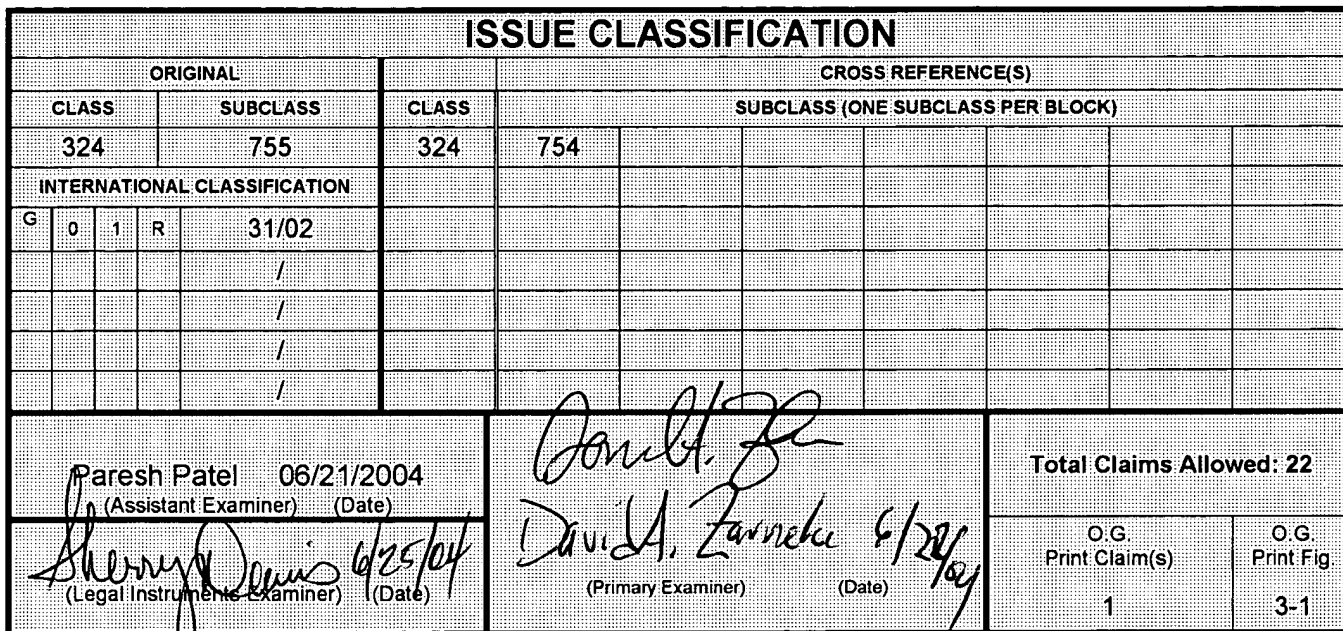 ISSUE CLASSIFICATION
ORIGINAL CROSS REFERENCE(S)
CLASS SUBCLASS CLASS SUBCLASS (ONE SUBCLASS PER BLOCK)
324 755 324 754
INTERNATIONAL CLASSIFICATION
G 0 1 R 31/02
/
/
/
/
Paresh Patel 06/21/2004
(Assistant Examiner) (Date)
Sherry Dennis 6/25/04
(Legal Instruments Examiner) (Date)
David A. Zarneke
(Primary Examiner) (Date)
Total Claims Allowed: 22
O.G.
Print Claim(s)
1
O.G.
Print Fig.
3-1